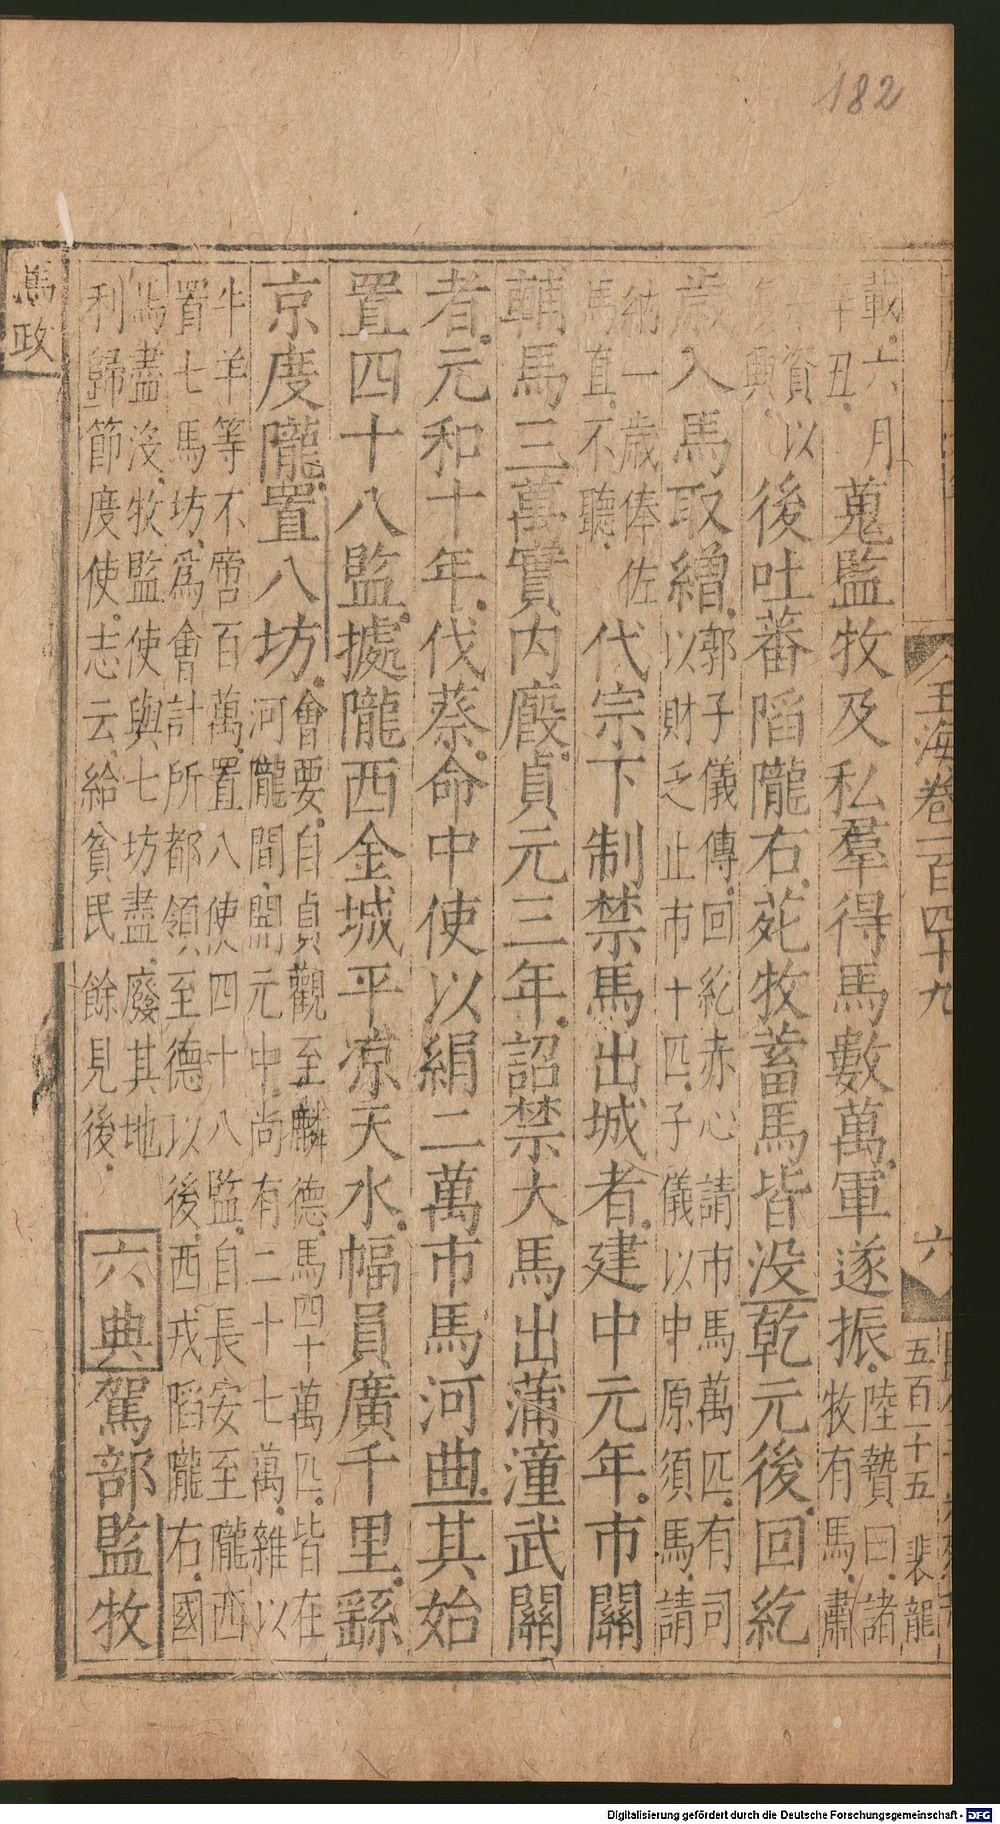 182
玉海卷一百四十九 六 五百十五 裴龍
載六月
辛丑
蒐監牧及私羣得馬數萬軍遂振
陸贄曰諸
牧有馬肅
資以
興
後吐蕃陷隴右苑牧蓄馬皆没乾元後回紇
歲入馬取繒
郭子儀傳回紇赤心請市馬萬匹有司
以財乏止市十匹子儀以中原須馬請
納一歲俸佐
馬直不聽
代宗下制禁馬出城者建中元年市關
輔馬三萬實内廐貞元三年詔禁大馬出蒲潼武關
者元和十年伐蔡命中使以絹二萬市馬河曲其始
置四十八監據隴西金城平凉天水幅員廣千里繇
京度隴置八坊
會要自貞觀至麟德馬四十萬匹皆在
河隴間開元中尚有二十七萬雜以
牛羊等不啻百萬置八使四十八監自長安至隴西
置七馬坊爲會計所都領至德以後西戎陷隴右國
馬盡没牧監使與七坊盡廢其地
利歸節度使志云給貧民餘見後
六典駕部監牧
馬政
Digitalisierung gefördert durch die Deutsche Forschungsgemeinschaft - DFG